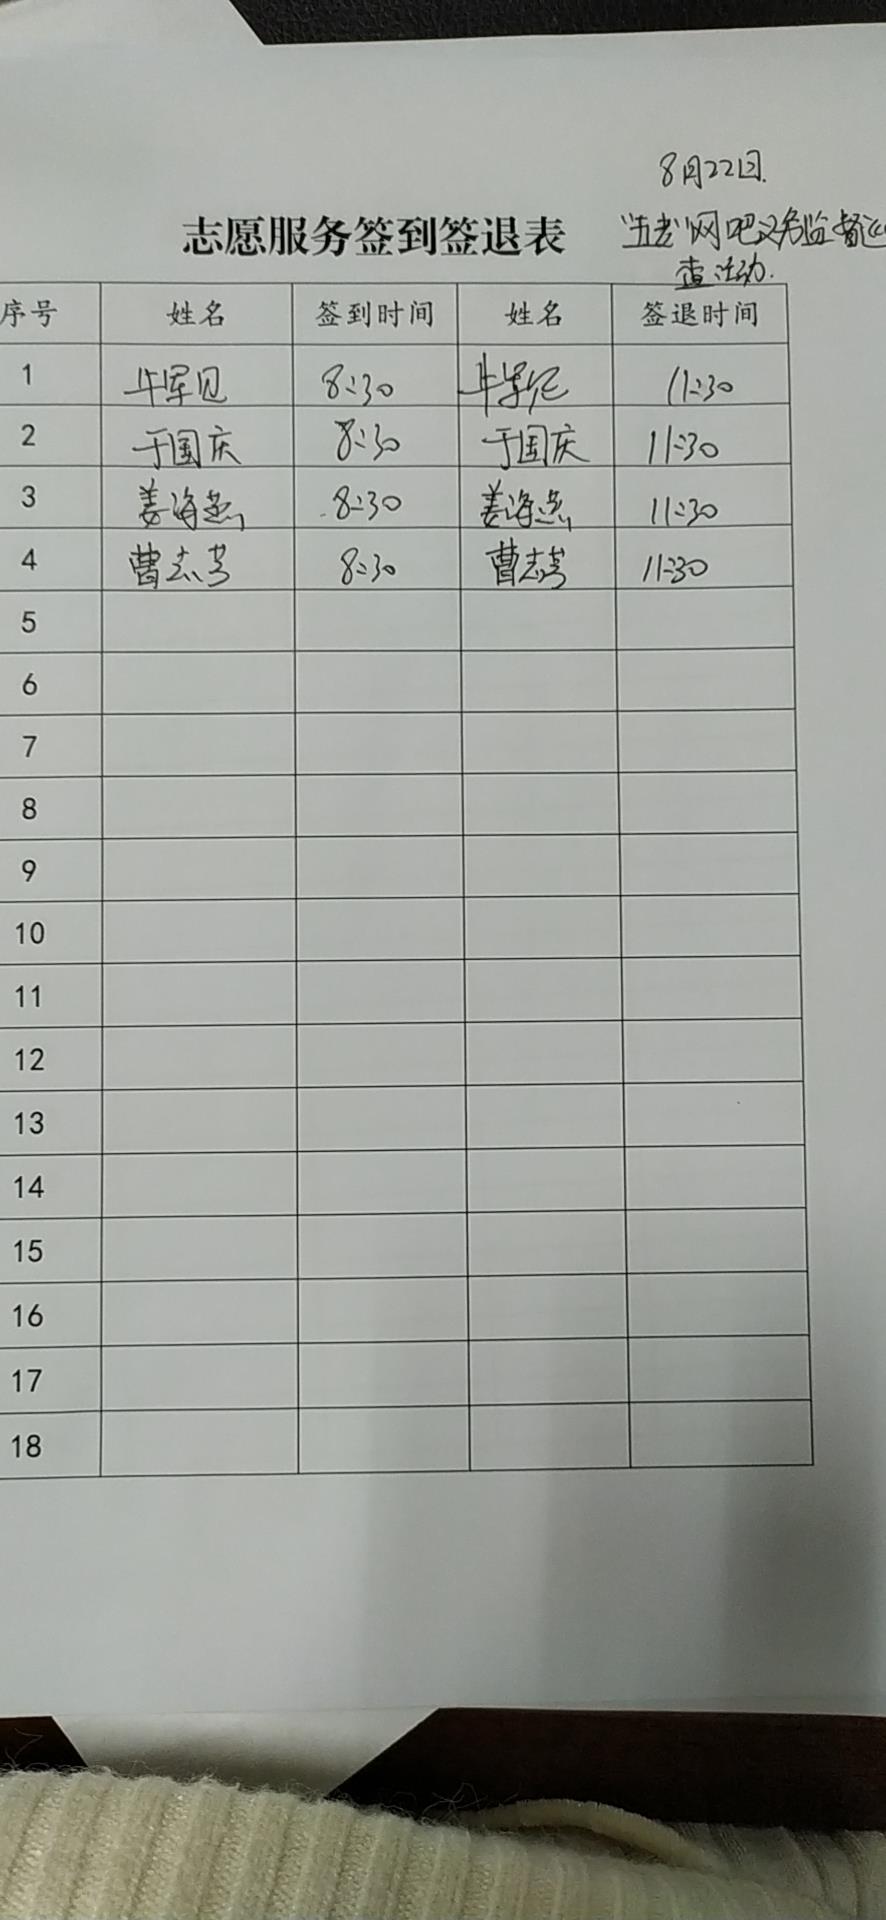 8月22日.
志愿服务签到签退表
"五老"网吧义务监督巡
查活动.
序号 姓名 签到时间 姓名 签退时间
1 牛军 8:30 牛军 11:30
2 于国庆 8:30 于国庆 11:30
3 姜海燕 8:30 姜海燕 11:30
4 曹志芳 8:30 曹志芳 11:30
5
6
7
8
9
10
11
12
13
14
15
16
17
18